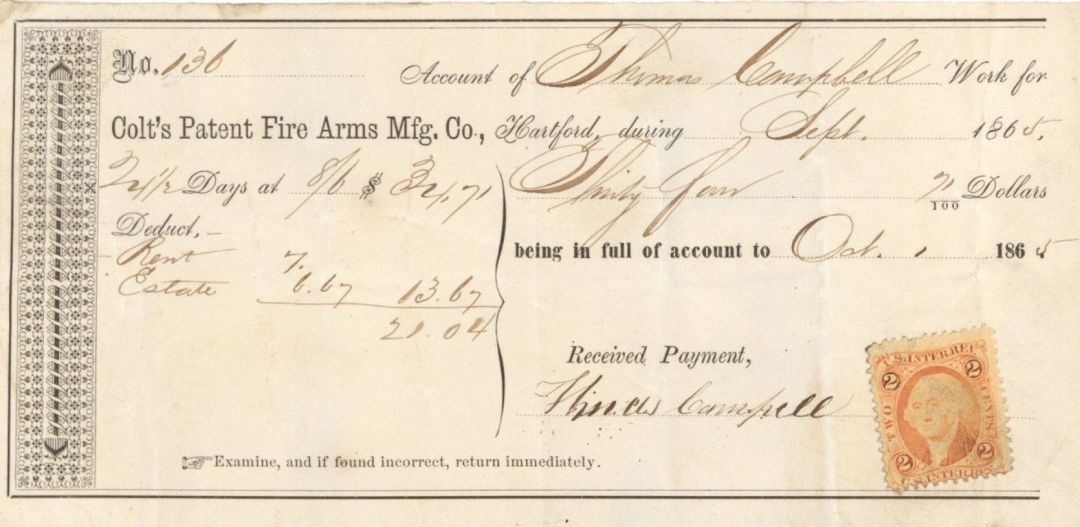 No. 136 Account of Thomas Campbell Work for
Colt's Patent Fire Arms Mfg. Co., Hartford, during Sept. 1865.
24 1/2 Days at 8/6 $ 34,71 Thirty four 71/100 Dollars
Deduct,- being in full of account to Oct. 1 1865
Rent 7.
Estate 6.67 13.67
21.04
Received Payment,
Campell
☞Examine, and if found incorrect, return immediately.
U.S. INTER. REV.
2 2
TWO CENTS
2 2
U.S. INTER. REV.